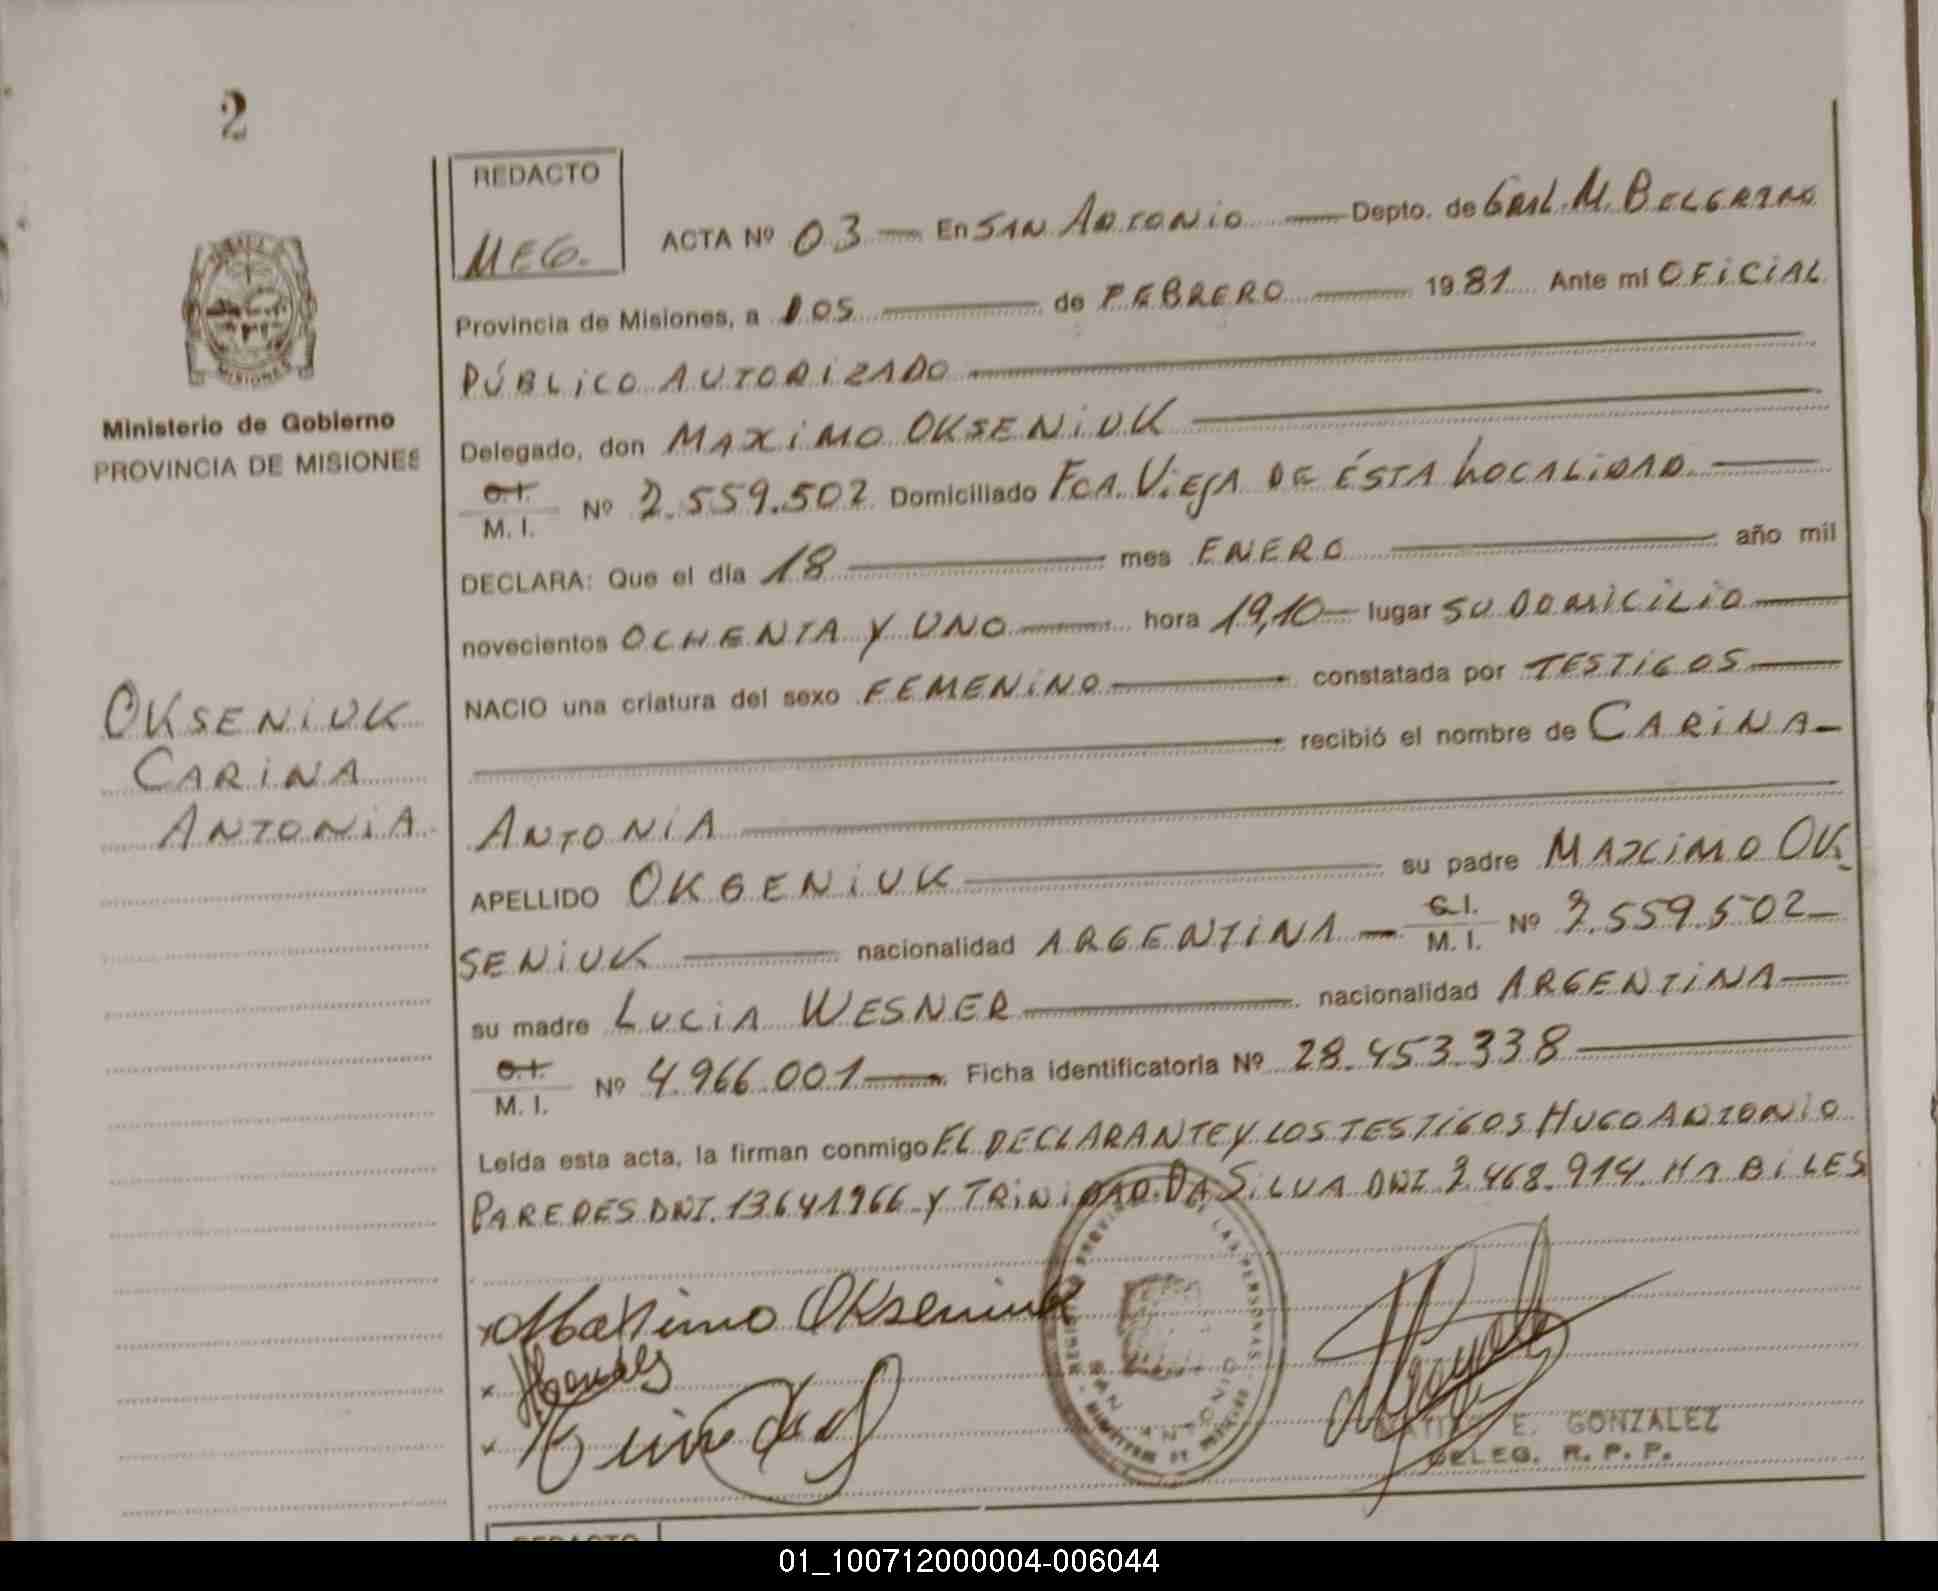 2
REDACTO
MEG.
ACTA Nº 03 — En SAN ANTONIO — Depto. de GRAL. M. BELGRANO
Provincia de Misiones, a 05 — de FEBRERO — 1981 Ante mí OFICIAL
PÚBLICO AUTORIZADO
Ministerio de Gobierno
PROVINCIA DE MISIONES
Delegado, don MAXIMO OKSENIUK
C.I.
M. I. Nº 7.559.502 Domiciliado FCA. VIEJA DE ÉSTA LOCALIDAD —
DECLARA: Que el día 18 — mes ENERO — año mil
novecientos OCHENTA Y UNO — hora 19,10 — lugar SU DOMICILIO —
NACIO una criatura del sexo FEMENINO — constatada por TESTIGOS —
recibió el nombre de CARINA —
OKSENIUK
CARINA
ANTONIA
ANTONIA
APELLIDO OKSENIUK — su padre MAXIMO OK-
SENIUK — nacionalidad ARGENTINA — C.I. M. I. Nº 7.559.502 —
su madre LUCIA WESNER — nacionalidad ARGENTINA —
C.I.
M. I. Nº 4.966.001 — Ficha identificatoria Nº 28.453.338 —
Leída esta acta, la firman conmigo EL DECLARANTE Y LOS TESTIGOS HUGO ANTONIO
PAREDES DNI. 13.641.966 Y TRINIDAD DA SILVA DNI 2.468.914 HABILES
x Maximo Okseniuk
REGISTRO PROVINCIAL DE LAS PERSONAS
SAN ANTONIO
E. GONZALEZ
DELEG. R. P. P.
REDACTO
01_100712000004-006044